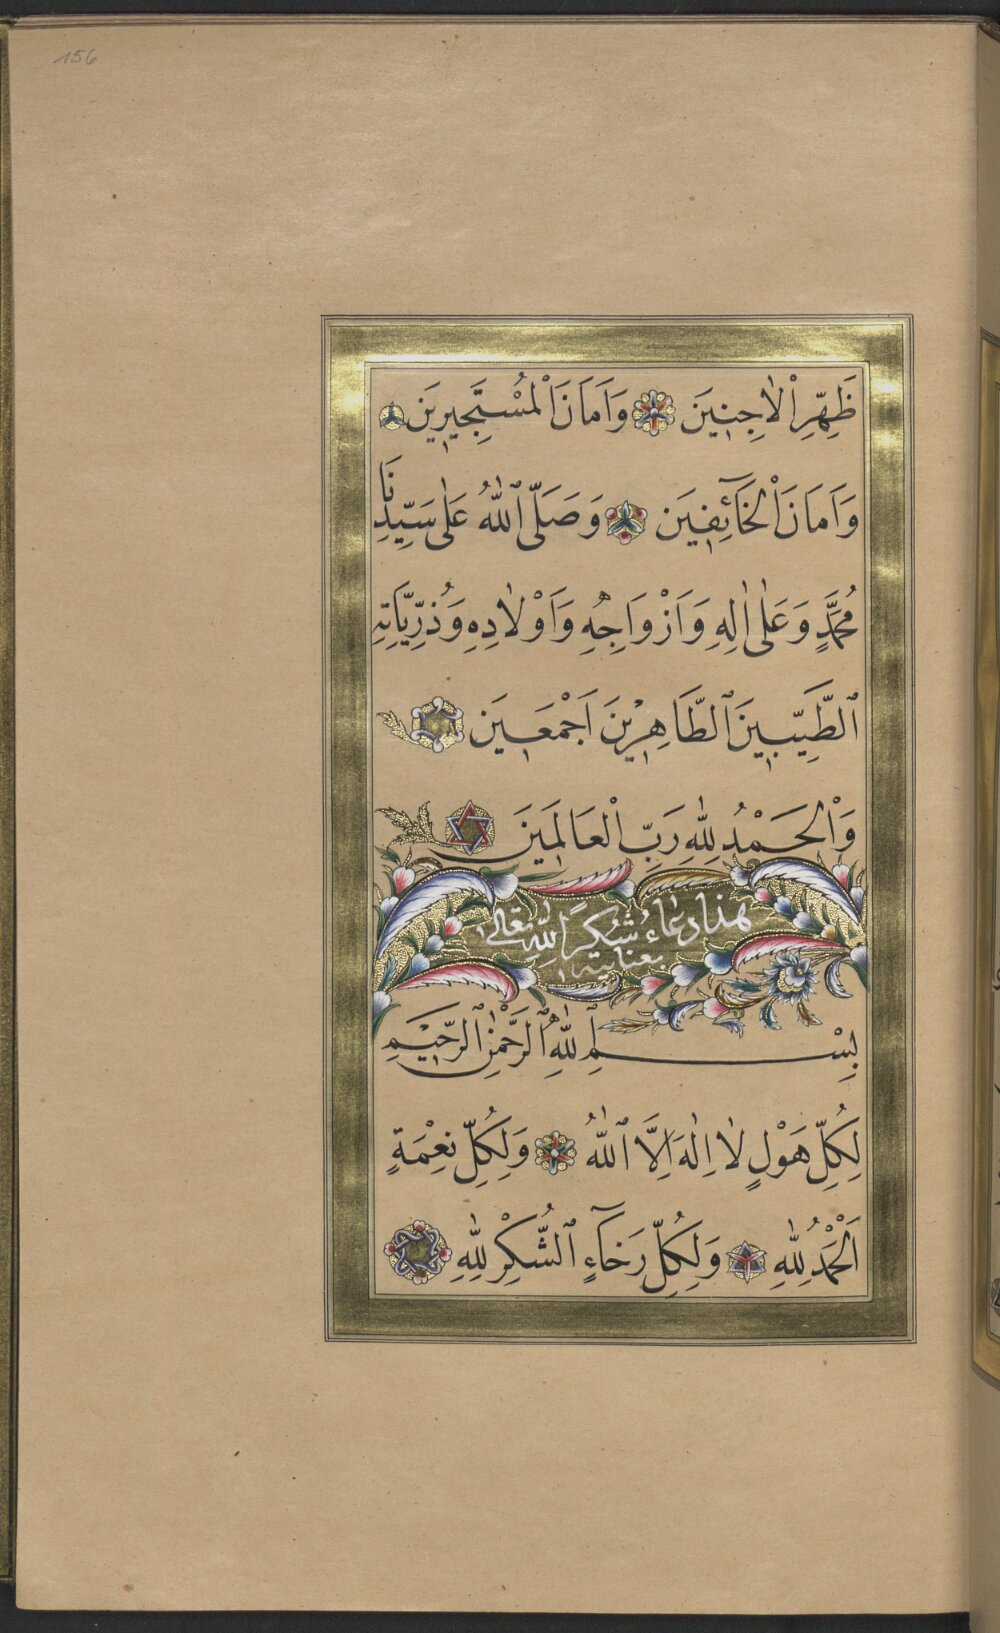 156
ظَهِّرِ اْلاٰجِنِينَ وَاَمَانَ اْلمُسْتَجِيرِينَ
وَاَمَانَ اْلخَآئِفِينَ وَصَلَّى ٱللّٰهُ عَلٰى سَيِّدِنَا
مُحَمَّدٍ وَعَلٰى اٰلِهِ وَاَزْوَاجِهِ وَاَوْلَادِهِ وَذُرِّيَّاتِهِ
ٱلطَّيِّبِينَ ٱلطَّاهِرِينَ اَجْمَعِينَ
وَاْلحَمْدُ لِلّٰهِ رَبِّ اْلعَالَمِينَ
هذا دعاء شُكرًا لله تعالى
بِسْمِ ٱللّٰهِ ٱلرَّحْمٰنِ ٱلرَّحِيمِ
لِكُلِّ هَوْلٍ لَا اِلٰهَ اِلَّا ٱللّٰهُ وَلِكُلِّ نِعْمَةٍ
اَلْحَمْدُ لِلّٰهِ وَلِكُلِّ رَخَآءٍ ٱلشُّكْرُ لِلّٰهِ